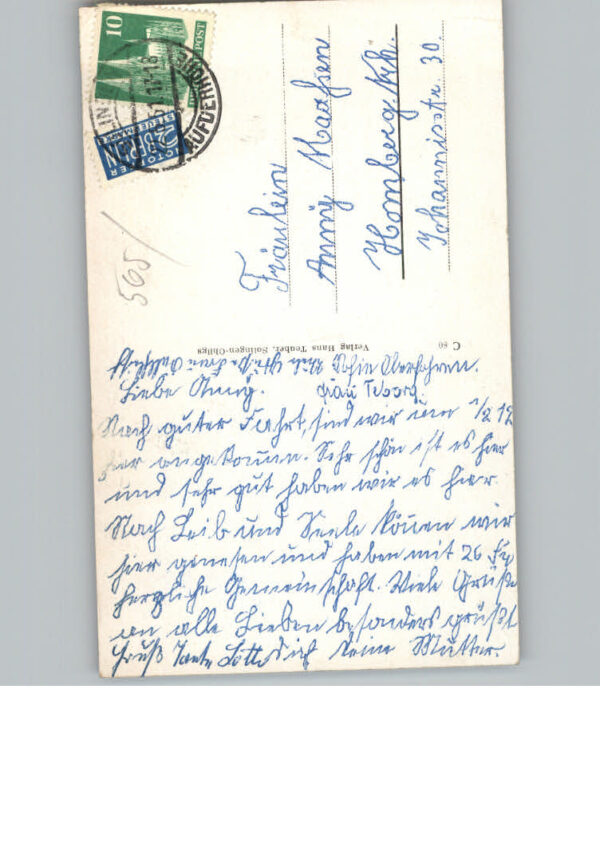 10
POST
NOTOPFER
2 BERLIN
STEUERMARKE
AUFDERHÖHE
565/
Fräulein
Änny Maaßen
Homberg Ndrh.
Johannisstr. 30
C 60
Verlag Hans Teubel, Solingen-Ohligs
Liebe Änny.
Frau Teborg
Nach guter Fahrt, sind wir um 1/2 12
hier angekommen. Sehr schön ist es hier
und sehr gut haben wir es hier.
Nach Leib und Seele können wir
hier genesen und haben mit 26
herzliche Gemeinschaft. Viele Grüße
an alle Lieben besonders grüßt
dich deine Mutter.
Gruß Tante Lotte